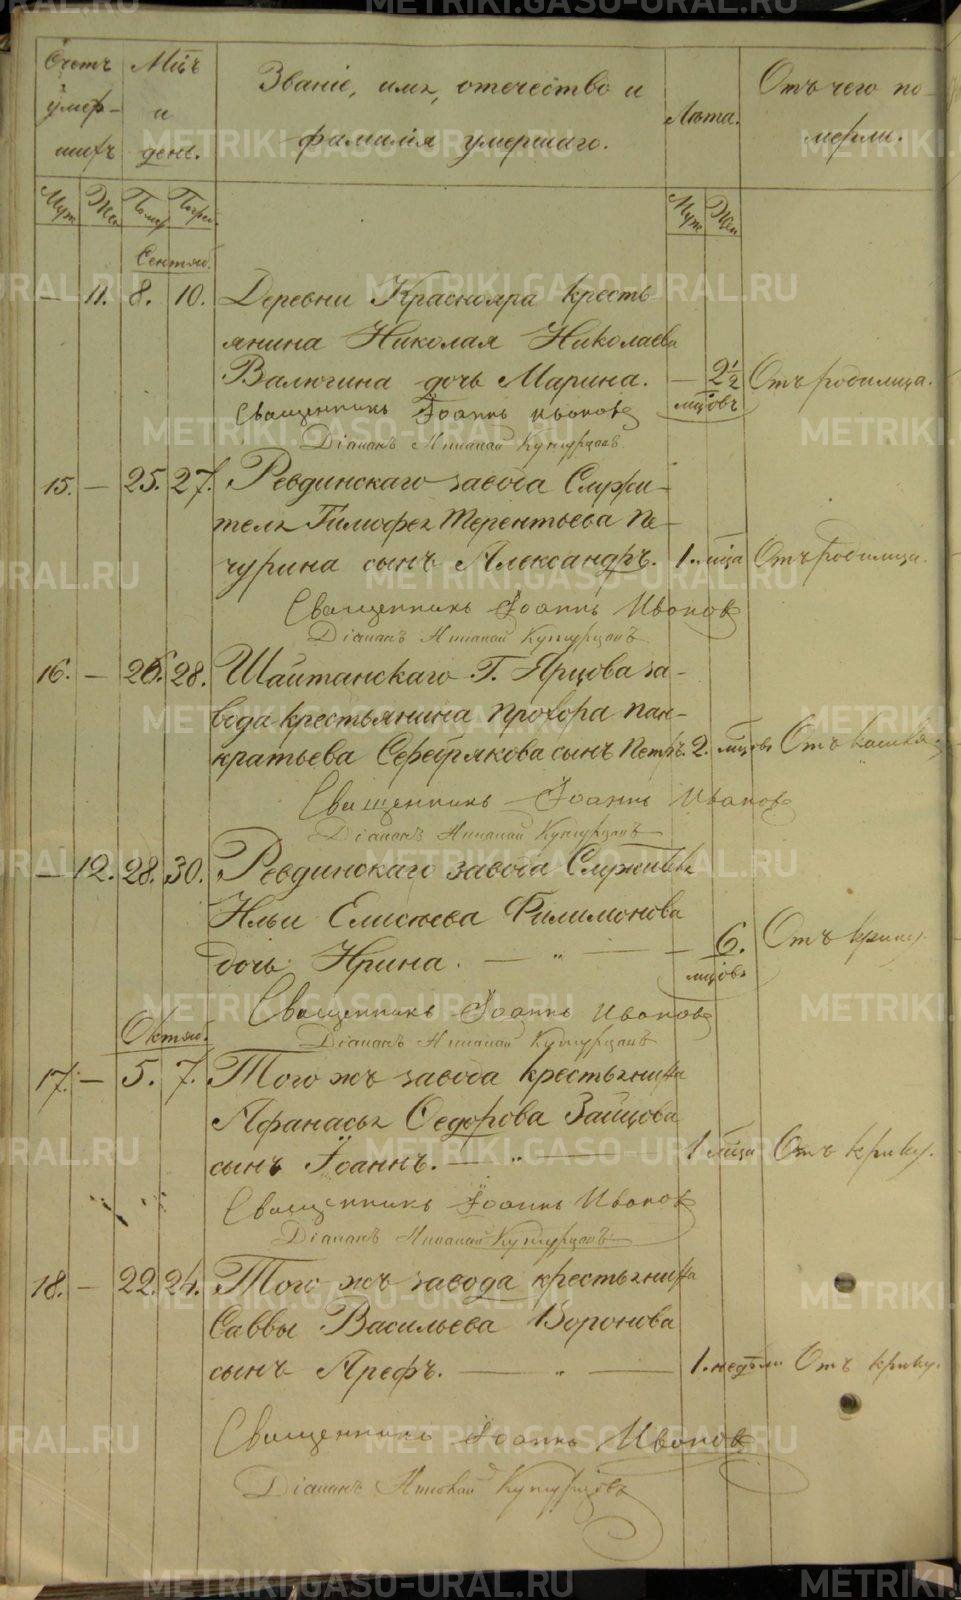 Счетъ умер- шихъ
Мцъ и день.
Званіе, имя, отечество и
фамилія умершаго.
Лѣта.
Отъ чего по-
мерли.
Муж. Жен. Помер. Погреб. Муж. Жен.
Сентяб.
— 11. 8. 10. Деревни Краснояра кресть-
янина Николая Николаева
Валюгина дочь Марина. — 2½ мцовъ Отъ родимца.
Священникъ Іоаннъ Ивановъ
Діаконъ
15. — 25. 27. Ревдинскаго завода Служи-
теля Тимофея Терентьева Пе-
чурина сынъ Александръ. 1 мца Отъ родимца.
Священникъ Іоаннъ Ивановъ
Діаконъ
16. — 26. 28. Шайтанскаго Г. Ярцова за-
вода крестьянина Прохора Пан-
кратьева Серебрякова сынъ Петръ. 2. мцовъ Отъ кашля
Священникъ Іоаннъ Ивановъ
Діаконъ
— 12. 28. 30. Ревдинскаго завода Служителя
Ильи Елисѣева Филимонова
дочь Ирина. — „ — — 6. мцовъ Отъ крику.
Священникъ Іоаннъ Ивановъ
Діаконъ
Октяб.
17. — 5. 7. Того жъ завода крестьянина
Афанасья Ѳедорова Зайцова
сынъ Іоаннъ. — „ — 1 мца Отъ крику.
Священникъ Іоаннъ Ивановъ
Діаконъ
18. — 22. 24. Того жъ завода крестьянина
Саввы Васильева Воронова
сынъ Арефъ. — „ — 1. недѣли Отъ крику.
Священникъ Іоаннъ Ивановъ
Діаконъ
METRIKI.GASO-URAL.RU